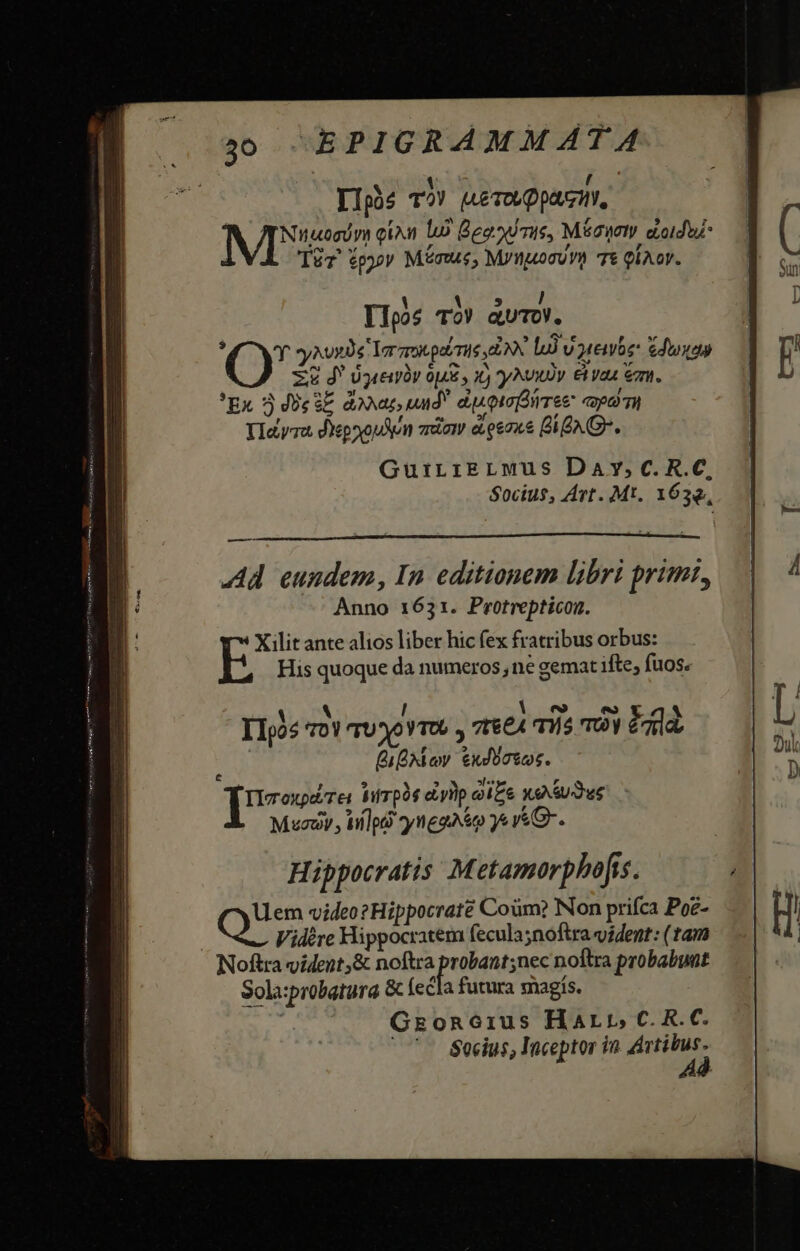 30 EPIGRAMMATA
Πρὸς τὸν μεταφραστήν.
MΝημοσύνη φίλη ἰῶ βραχύτης, Μούσῃσιν ἀοιδαί·
Τοῦτ' ἔργον Μούσαις, Μνημοσύνῃ τε φίλον.
Πρὸς τὸν ἀυτόν.
ΟΥ γλυκὺς Ἱπποκράτης, ἀλλ' ἰῶ ὑγιεινός· ἔδωκας
Σοῦ δ' ὑγιεινὸν ὁμοῦ, καὶ γλυκὺν εἶναι ἔπη.
Ἐκ δὲ δὸς ἓξ ἄλλας, μηδ' ἀμφισβήτεε· πρώτη
Πάντα διερχομένη πᾶσιν ἄρεσκε βίβλος.
GUILIELMUS DAY, C. R. C.
Socius, Art. Mr. 1632.
Ad eundem, In editionem libri primi,
Anno 1631. Protrepticon.
EXilit ante alios liber hic sex fratribus orbus:
His quoque da numeros, ne gemat iste, suos.
Πρὸς τὸν τυχόντα, περὶ τῆς τῶν ἑπτὰ
βιβλίων ἐκδόσεως.
ΙΠποκράτει ἰητρὸς ἀνὴρ ὤϊξε κελεύθους
Μουσῶν, ἰητρῷ γηραλέῳ γε νέος.
Hippocratis Metamorphosis.
QUem video? Hippocratē Coüm? Non prisca Poë-
Vidêre Hippocratem secula; nostra vident: (tam
Nostra vident, & nostra probant; nec nostra probabunt
Sola: probatura & secla futura magis.
GEORGIUS HALL, C. R. C.
Socius, Inceptor in Artibus.
Ad